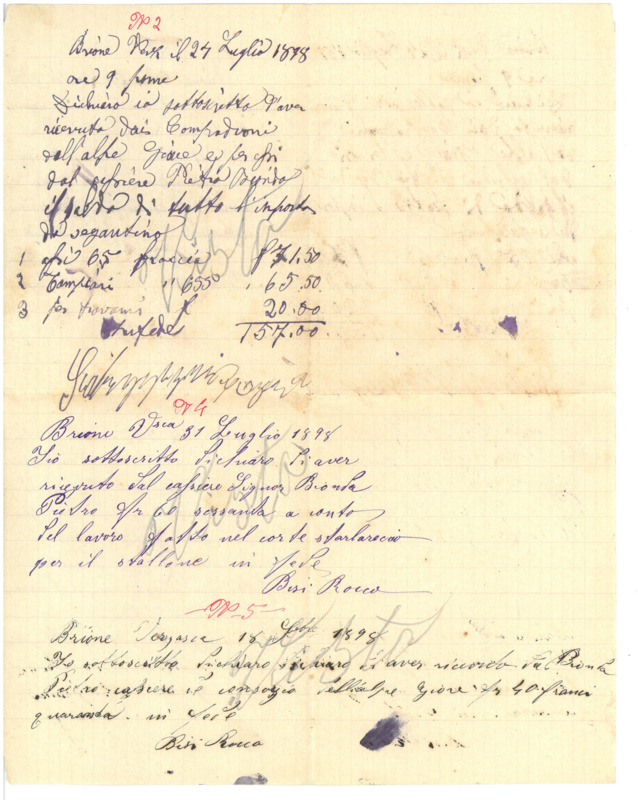 Nº 2
Brione Vsca il 24 Luglio 1898
ore 9 pome
Dichiaro io sottoscritto d'aver
ricevuto dai Compadroni
dell'alpe e per essi
dal cassiere Pietro Bionda
il saldo di tutto l'importo
da segantino
1 assi 65 braccia f 71.50
2 " 655 " 65.50
3 per travami f 20.00
In fede 157.00
Nº 4
Brione Vsca 31 Luglio 1898
Io sottoscritto dichiaro di aver
riceputo dal cassiere Signor Bionda
Pietro fr 60 sessanta a conto
del lavoro fatto nel corte
per il stallone in fede
Bisi Rocco
Nº 5
Brione Verzasca 18 1898
Io sottoscritto dichiaro d'aver riceuto da Bionda
Pietro cassiere consozio dell'alpe fr 40 franci
quaranta. in fede
Bisi Rocco